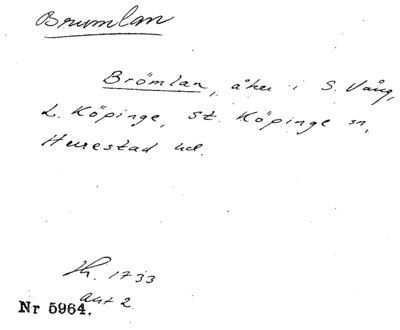 Brumlan
Brömlan, åker i S. Vång,
L. Köpinge, St. Köpinge sn,
Herrestad hd.
Lh. 1733
akt 2
Nr 5964.